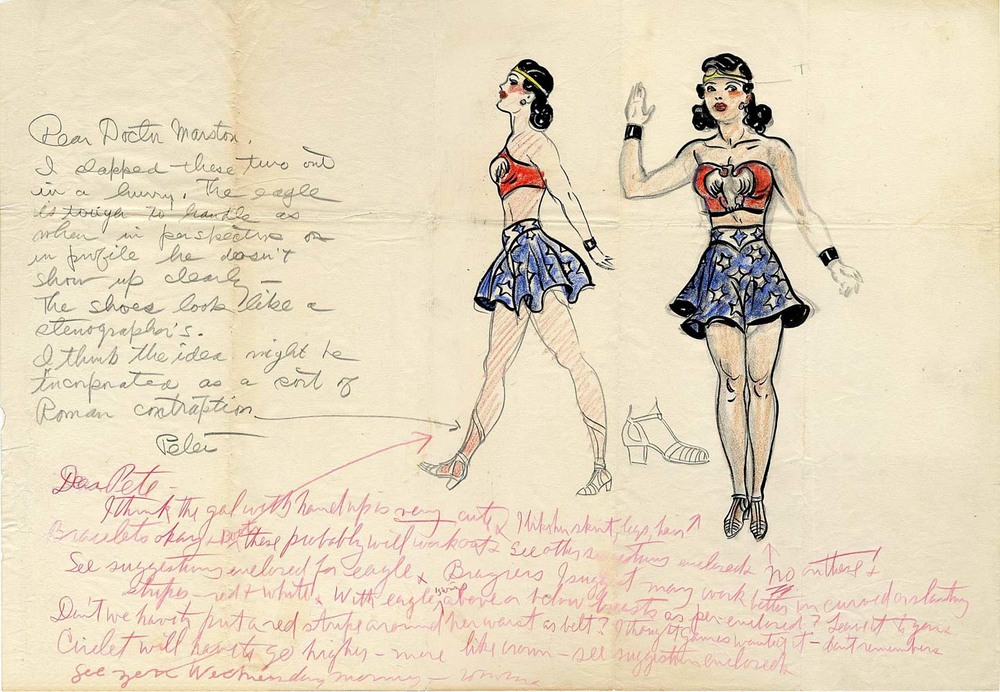 Dear Doctor Marston,
I slapped these two out
in a hurry. The eagle
is tough to handle as
when in perspective or
in profile he doesn't
show up clearly —
The shoes look like a
stenographer's.
I think the idea might be
incorporated as a sort of
Roman contraption
Peter
Dear Pete —
I think the gal with hand up is very cute I like her skirt, legs, hair
Bracelets okay & boots these probably will work out See other suggestions enclosed No on these
See suggestions enclosed for eagle Bra I suggest may work better in curved or slanting
stripes — red & white With eagle's wings above or below breasts as per enclosed? Leave it to you
Don't we have to put a red stripe around her waist as belt? I thought Gaines wanted it — don't remember
Circlet will have to go higher — more like crown — see suggestion enclosed
See you Wednesday morning —